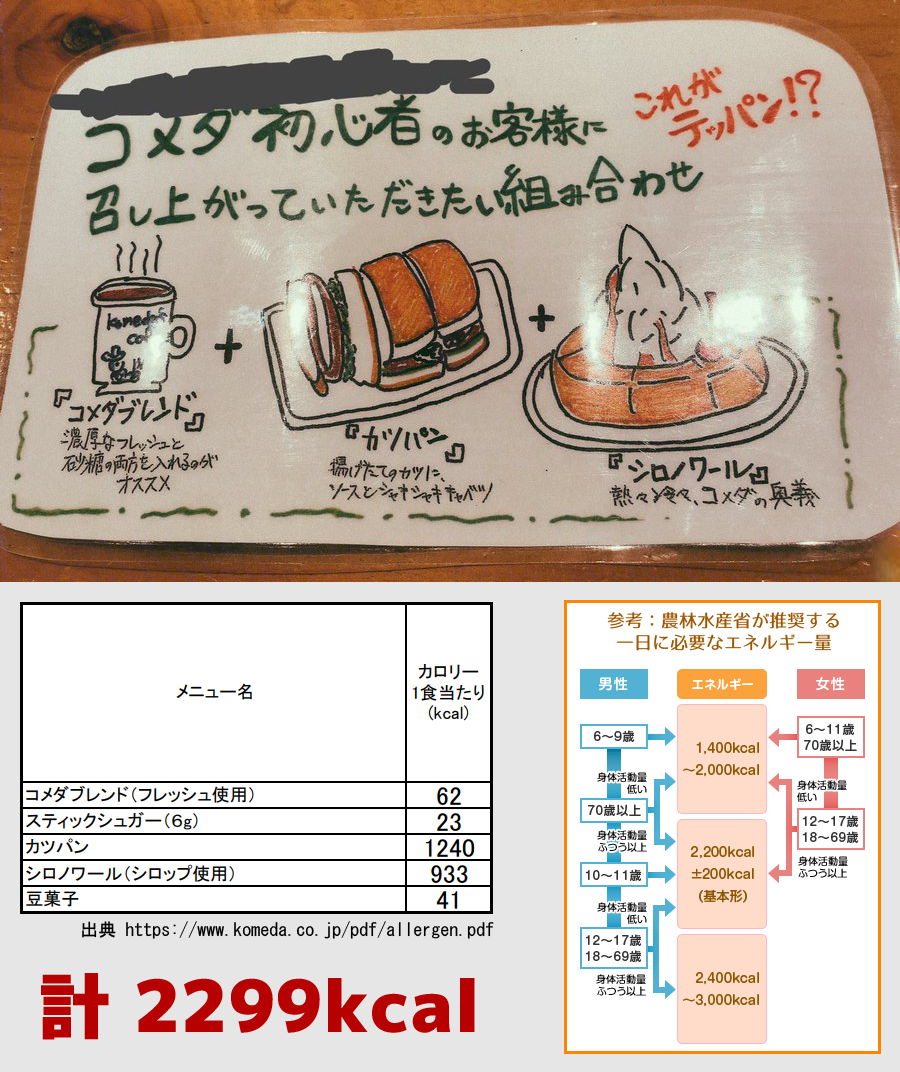 コメダ初心者のお客様に
これが
テッパン!?
召し上がっていただきたい組み合わせ
komeda's
coffee
『コメダブレンド』
濃厚なフレッシュと
砂糖の両方を入れるのが
オススメ
+
『カツパン』
揚げたてのカツに、
ソースとシャキシャキキャベツ
+
『シロノワール』
熱々冷々、コメダの奥義
メニュー名
カロリー
1食当たり
(kcal)
コメダブレンド(フレッシュ使用) 62
スティックシュガー(6g) 23
カツパン 1240
シロノワール(シロップ使用) 933
豆菓子 41
出典 https://www.komeda.co.jp/pdf/allergen.pdf
計 2299kcal
参考:農林水産省が推奨する
一日に必要なエネルギー量
男性 エネルギー 女性
6〜9歳
身体活動量
低い
70歳以上
身体活動量
ふつう以上
10〜11歳
身体活動量
低い
12〜17歳
18〜69歳
身体活動量
ふつう以上
1,400kcal
〜2,000kcal
2,200kcal
±200kcal
(基本形)
2,400kcal
〜3,000kcal
6〜11歳
70歳以上
身体活動量
低い
12〜17歳
18〜69歳
身体活動量
ふつう以上